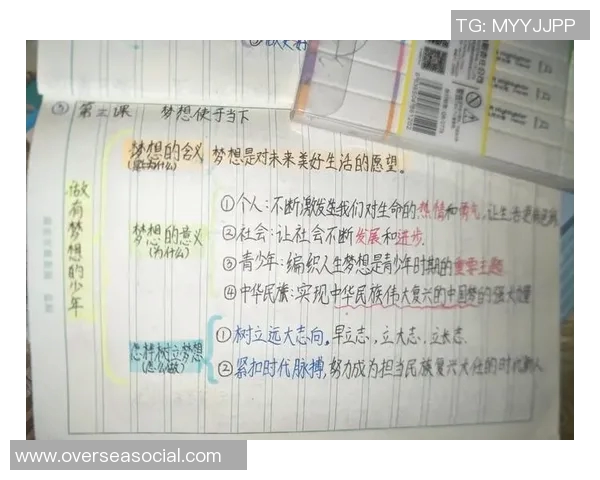 TG: MYYJJPP
③ 第二课 梦想使于当下
做有梦想的少年
梦想的含义 梦想是对未来美好生活的愿望。
(是为什么)
①个人:不断激发我们对生命的热情和勇气,让生活更
梦想的意义
(为什么)
②社会:让社会不断发展和进步.
③青少年:编织人生梦想是青少年时期的重要主题
④中华民族:实现中华民族伟大复兴的中国梦的强大
①树立远大志向,早立志,立大志,立长志.
怎样树立梦想
(怎么做)
②紧扣时代脉搏,努力成为担当民族复兴大任的时代新人
www.overseasocial.com